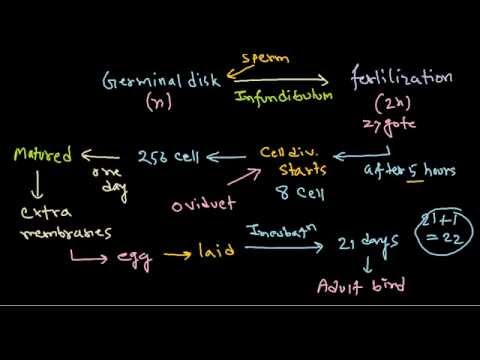 sperm
Germinal disk
(n)
Infundibulum
fertilization
(2n)
zygote
after 5 hours
Cell div. starts
8 cell
oviduct
256 cell
one day
Matured
extra membranes
egg
laid
Incubatn
21 days
21+1
=22
Adult bird